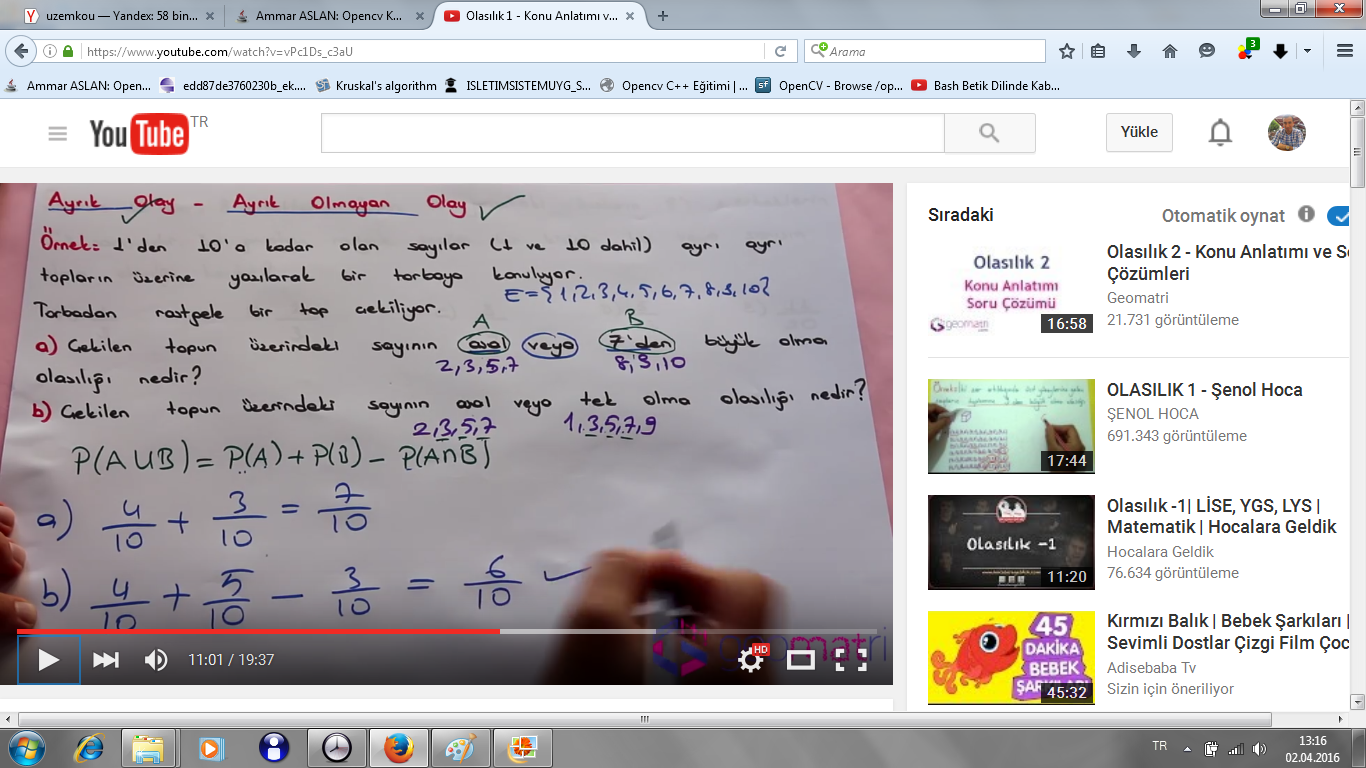 uzemkou — Yandex: 58 bin...
Ammar ASLAN: Opencv K...
Olasılık 1 - Konu Anlatımı v...
https://www.youtube.com/watch?v=vPc1Ds_c3aU
Arama
3
Ammar ASLAN: Open...
edd87de3760230b_ek....
Kruskal's algorithm
ISLETIMSISTEMUYG_S...
Opencv C++ Eğitimi | ...
OpenCV - Browse /op...
Bash Betik Dilinde Kab...
YouTube TR
Yükle
Ayrık Olay - Ayrık Olmayan Olay
Örnek: 1'den 10'a kadar olan sayılar (1 ve 10 dahil) ayrı ayrı
topların üzerine yazılarak bir torbaya konuluyor.
E={1,2,3,4,5,6,7,8,9,10}
Torbadan rastgele bir top çekiliyor.
A B
a) Çekilen topun üzerindeki sayının asal veya 7'den büyük olma
2,3,5,7 8,9,10
olasılığı nedir?
b) Çekilen topun üzerindeki sayının asal veya tek olma olasılığı nedir?
2,3,5,7 1,3,5,7,9
P(A∪B) = P(A) + P(B) - P(A∩B)
a) 4/10 + 3/10 = 7/10
b) 4/10 + 5/10 - 3/10 = 6/10
geomatri
11:01 / 19:37
HD
Sıradaki
Otomatik oynat
Olasılık 2
Konu Anlatımı
Soru Çözümü
geomatri
16:58
Olasılık 2 - Konu Anlatımı ve So
Çözümleri
Geomatri
21.731 görüntüleme
17:44
OLASILIK 1 - Şenol Hoca
ŞENOL HOCA
691.343 görüntüleme
Olasılık -1
11:20
Olasılık -1| LİSE, YGS, LYS |
Matematik | Hocalara Geldik
Hocalara Geldik
76.634 görüntüleme
45
DAKİKA
BEBEK
ŞARKILARI
45:32
Kırmızı Balık | Bebek Şarkıları |
Sevimli Dostlar Çizgi Film Çoc
Adisebaba Tv
Sizin için öneriliyor
TR
13:16
02.04.2016